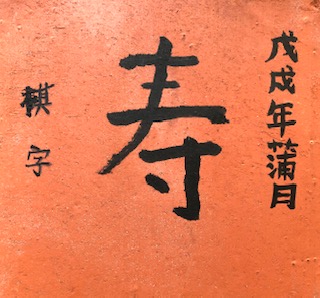 戊戌年蒲月
寿
棋字